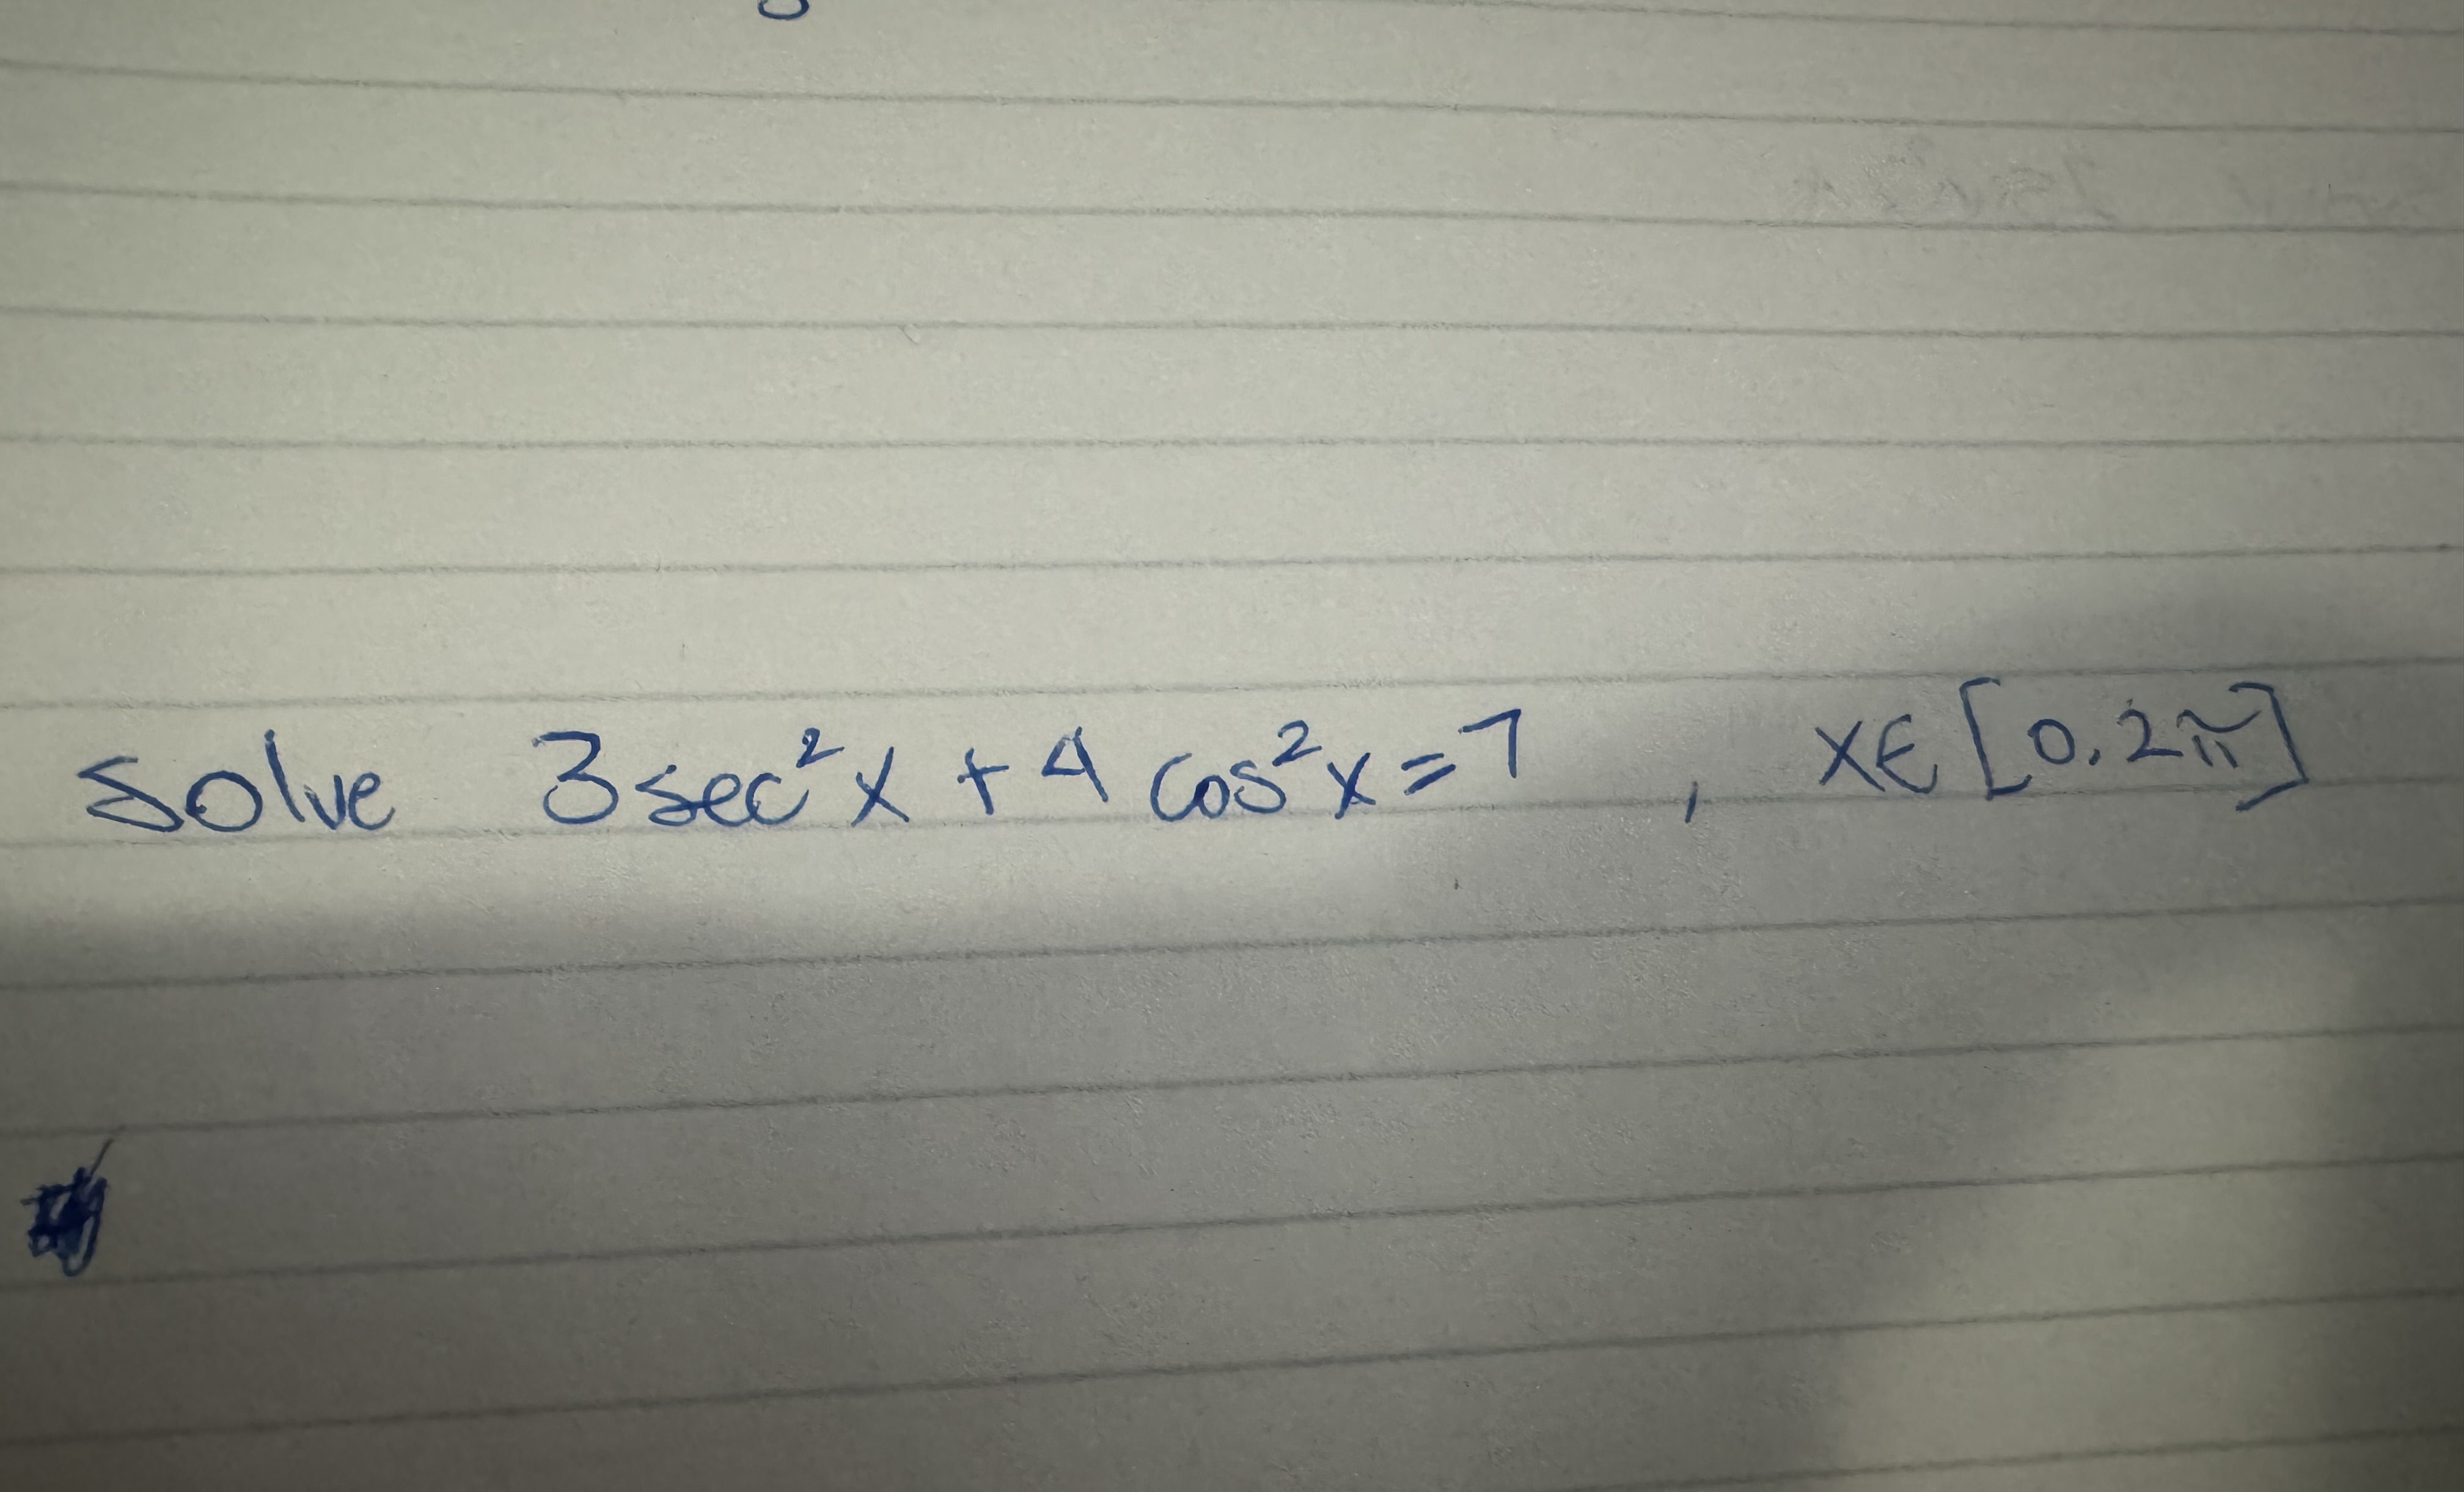 solve 3 sec²x + 4 cos²x = 7 , x∈[0.2π]